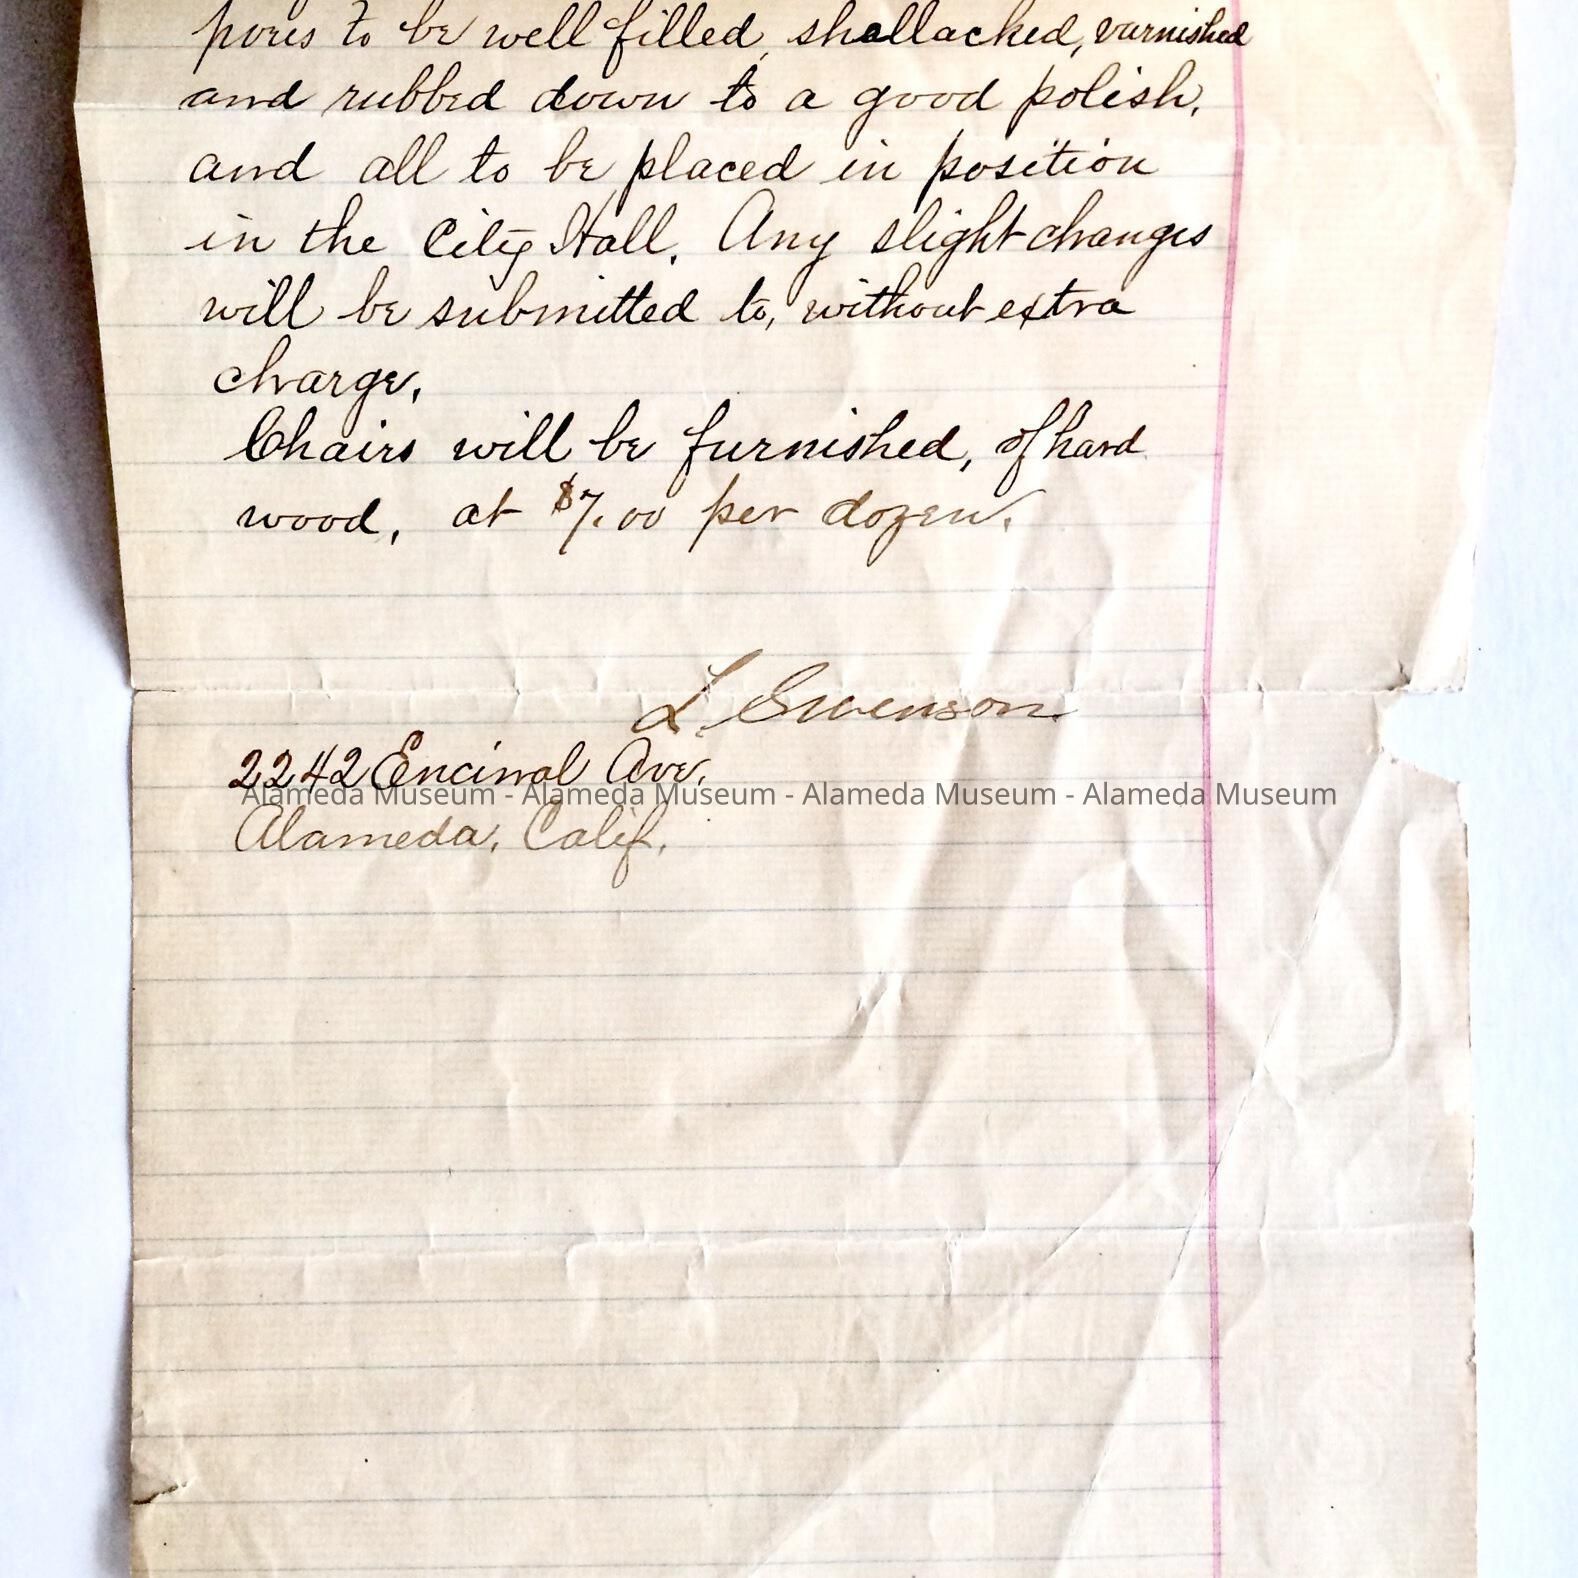 pores to be well filled, shellacked, varnished
and rubbed down to a good polish,
and all to be placed in position
in the City Hall. Any slight changes
will be submitted to, without extra
charge.
Chairs will be furnished, of hard
wood, at $7.00 per dozen.
L. Swenson.
2242 Encinal Ave.
Alameda Museum - Alameda Museum - Alameda Museum - Alameda Museum
Alameda, Calif.